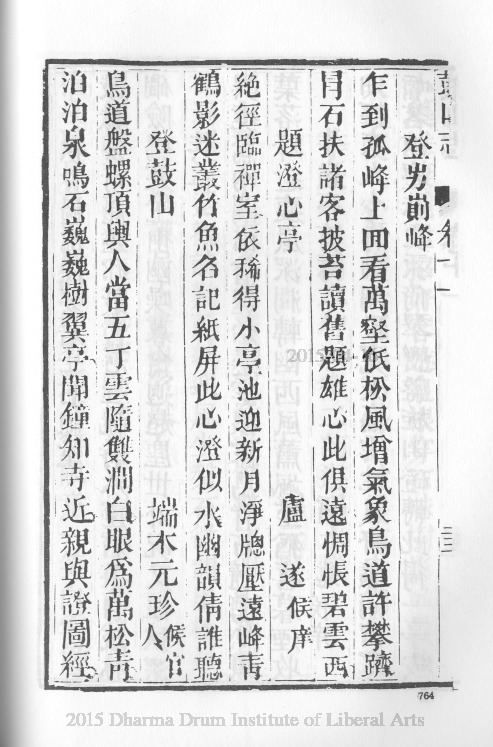 登屴崱峰
乍到孤峰上回看萬壑低松風增氣象鳥道許攀躋
冐石扶諸客披苔讀舊題雄心此俱遠惆悵碧雲西
題澄心亭 盧 遂 候庠
絶徑臨禪室依稀得小亭池迎新月淨牕壓遠峰靑
鶴影迷叢竹魚名記紙屏此心澄似水幽韻倩誰聽
登鼓山 端木元珍 候官人
鳥道盤螺頂與人當五丁雲隨雙澗白眼爲萬松靑
泊泊泉鳴石巍巍樹翼亭聞鐘知寺近親與證圖經
764
2015 Dharma Drum Institute of Liberal Arts